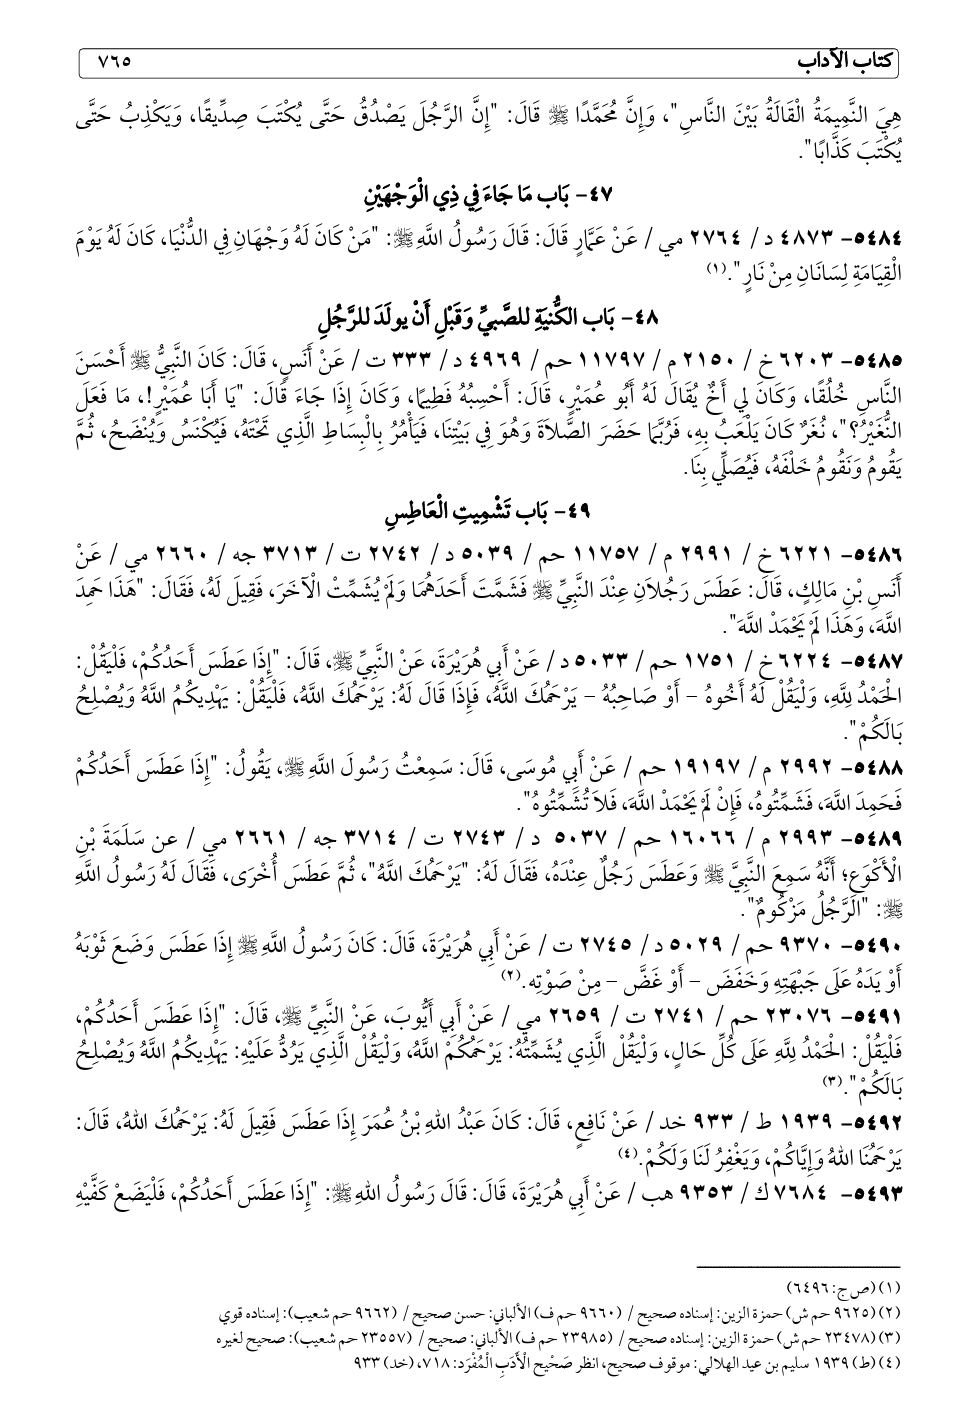 كتاب الآداب ٧٦٥
هِيَ النَّمِيمَةُ الْقَالَةُ بَيْنَ النَّاسِ"، وَإِنَّ مُحَمَّدًا ﷺ قَالَ: "إِنَّ الرَّجُلَ يَصْدُقُ حَتَّى يُكْتَبَ صِدِّيقًا، وَيَكْذِبُ حَتَّى
يُكْتَبَ كَذَّابًا".
٤٧- بَاب مَا جَاءَ فِي ذِي الْوَجْهَيْنِ
٥٤٨٤- ٤٨٧٣ د/ ٢٧٦٤ مي / عَنْ عَمَّارٍ قَالَ: قَالَ رَسُولُ اللَّهِ ﷺ: "مَنْ كَانَ لَهُ وَجْهَانِ فِي الدُّنْيَا، كَانَ لَهُ يَوْمَ
الْقِيَامَةِ لِسَانَانِ مِنْ نَارٍ".(١)
٤٨- بَاب الكُنيَةِ للصَّبيِّ وَقَبْلِ أَنْ يولَدَ للرَّجُلِ
٥٤٨٥- ٦٢٠٣ خ/ ٢١٥٠ م/ ١١٧٩٧ حم/ ٤٩٦٩ د/ ٣٣٣ ت / عَنْ أَنَسٍ، قَالَ: كَانَ النَّبِيُّ ﷺ أَحْسَنَ
النَّاسِ خُلُقًا، وَكَانَ لِي أَخٌ يُقَالُ لَهُ أَبُو عُمَيْرٍ، قَالَ: أَحْسِبُهُ فَطِيمًا، وَكَانَ إِذَا جَاءَ قَالَ: "يَا أَبَا عُمَيْرٍ!، مَا فَعَلَ
النُّغَيْرُ؟"، نُغَرٌ كَانَ يَلْعَبُ بِهِ، فَرُبَّمَا حَضَرَ الصَّلاَةَ وَهُوَ فِي بَيْتِنَا، فَيَأْمُرُ بِالْبِسَاطِ الَّذِي تَحْتَهُ، فَيُكْنَسُ وَيُنْضَحُ، ثُمَّ
يَقُومُ وَنَقُومُ خَلْفَهُ، فَيُصَلِّي بِنَا.
٤٩- بَاب تَشْمِيتِ الْعَاطِسِ
٥٤٨٦- ٦٢٢١ خ/ ٢٩٩١ م/ ١١٧٥٧ حم/ ٥٠٣٩ د/ ٢٧٤٢ ت/ ٣٧١٣ جه / ٢٦٦٠ مي / عَنْ
أَنَسِ بْنِ مَالِكٍ، قَالَ: عَطَسَ رَجُلاَنِ عِنْدَ النَّبِيِّ ﷺ فَشَمَّتَ أَحَدَهُمَا وَلَمْ يُشَمِّتْ الْآخَرَ، فَقِيلَ لَهُ، فَقَالَ: "هَذَا حَمِدَ
اللَّهَ، وَهَذَا لَمْ يَحْمَدْ اللَّهَ".
٥٤٨٧- ٦٢٢٤ خ/ ١٧٥١ حم/ ٥٠٣٣ د/ عَنْ أَبِي هُرَيْرَةَ، عَنْ النَّبِيِّ ﷺ، قَالَ: "إِذَا عَطَسَ أَحَدُكُمْ، فَلْيَقُلْ:
الْحَمْدُ لِلَّهِ، وَلْيَقُلْ لَهُ أَخُوهُ – أَوْ صَاحِبُهُ – يَرْحَمُكَ اللَّهُ، فَإِذَا قَالَ لَهُ: يَرْحَمُكَ اللَّهُ، فَلْيَقُلْ: يَهْدِيكُمُ اللَّهُ وَيُصْلِحُ
بَالَكُمْ".
٥٤٨٨- ٢٩٩٢ م/ ١٩١٩٧ حم / عَنْ أَبِي مُوسَى، قَالَ: سَمِعْتُ رَسُولَ اللَّهِ ﷺ، يَقُولُ: "إِذَا عَطَسَ أَحَدُكُمْ
فَحَمِدَ اللَّهَ، فَشَمِّتُوهُ، فَإِنْ لَمْ يَحْمَدْ اللَّهَ، فَلاَ تُشَمِّتُوهُ".
٥٤٨٩- ٢٩٩٣ م/ ١٦٠٦٦ حم/ ٥٠٣٧ د/ ٢٧٤٣ ت/ ٣٧١٤ جه/ ٢٦٦١ مي/ عن سَلَمَةَ بْنِ
الْأَكْوَعِ؛ أَنَّهُ سَمِعَ النَّبِيَّ ﷺ وَعَطَسَ رَجُلٌ عِنْدَهُ، فَقَالَ لَهُ: "يَرْحَمُكَ اللَّهُ"، ثُمَّ عَطَسَ أُخْرَى، فَقَالَ لَهُ رَسُولُ اللَّهِ
ﷺ: "الرَّجُلُ مَزْكُومٌ".
٥٤٩٠- ٩٣٧٠ حم/ ٥٠٢٩ د/ ٢٧٤٥ ت / عَنْ أَبِي هُرَيْرَةَ، قَالَ: كَانَ رَسُولُ اللَّهِ ﷺ إِذَا عَطَسَ وَضَعَ ثَوْبَهُ
أَوْ يَدَهُ عَلَى جَبْهَتِهِ وَخَفَضَ – أَوْ غَضَّ – مِنْ صَوْتِه.(٢)
٥٤٩١- ٢٣٠٧٦ حم/ ٢٧٤١ ت/ ٢٦٥٩ مي/ عَنْ أَبِي أَيُّوبَ، عَنْ النَّبِيِّ ﷺ، قَالَ: "إِذَا عَطَسَ أَحَدُكُمْ،
فَلْيَقُلْ: الْحَمْدُ لِلَّهِ عَلَى كُلِّ حَالٍ، وَلْيَقُلْ الَّذِي يُشَمِّتُهُ: يَرْحَمُكُمْ اللَّهُ، وَلْيَقُلْ الَّذِي يَرُدُّ عَلَيْهِ: يَهْدِيكُمُ اللَّهُ وَيُصْلِحُ
بَالَكُمْ".(٣)
٥٤٩٢- ١٩٣٩ ط/ ٩٣٣ خد / عَنْ نَافِعٍ، قَالَ: كَانَ عَبْدُ اللهِ بْنُ عُمَرَ إِذَا عَطَسَ فَقِيلَ لَهُ: يَرْحَمُكَ اللهُ، قَالَ:
يَرْحَمُنَا اللهُ وَإِيَّاكُمْ، وَيَغْفِرُ لَنَا وَلَكُمْ.(٤)
٥٤٩٣- ٧٦٨٤ ك/ ٩٣٥٣ هب / عَنْ أَبِي هُرَيْرَةَ، قَالَ: قَالَ رَسُولُ اللهِ ﷺ: "إِذَا عَطَسَ أَحَدُكُمْ، فَلْيَضَعْ كَفَّيْهِ
(١) (ص ج: ٦٤٩٦)
(٢) (٩٦٢٥ حم ش) حمزة الزين: إسناده صحيح/ (٩٦٦٠ حم ف) الألباني: حسن صحيح/ (٩٦٦٢ حم شعيب): إسناده قوي
(٣) (٢٣٤٧٨ حم ش) حمزة الزين: إسناده صحيح/ (٢٣٩٨٥ حم ف) الألباني: صحيح/ (٢٣٥٥٧ حم شعيب): صحيح لغيره
(٤) (ط) ١٩٣٩ سليم بن عيد الهلالي: موقوف صحيح، انظر صَحْيح الْأَدَبِ الْمُفْرَد: ٧١٨، (خد) ٩٣٣